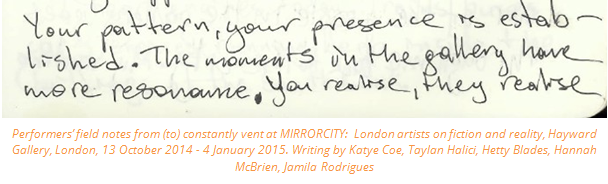 Your pattern, your presence is estab-
lished. The moments in the gallery have
more resonance. You realise, they realise
Performers' field notes from (to) constantly vent at MIRRORCITY:  London artists on fiction and reality, Hayward
Gallery, London, 13 October 2014 - 4 January 2015. Writing by Katye Coe, Taylan Halici, Hetty Blades, Hannah
McBrien, Jamila Rodrigues